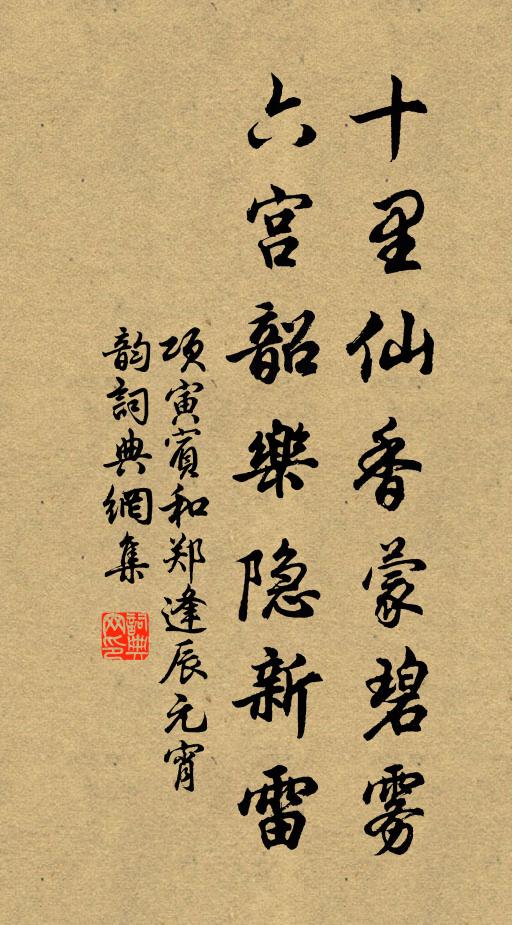 十里仙香蒙碧雾
六宫韶樂隐新雷
项寅賓和郑逢辰元宵
韵詞典網集
詞典网印